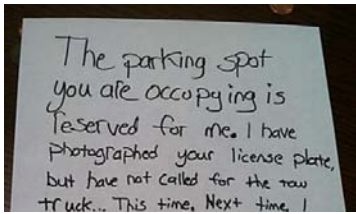 The parking spot
you are occupying is
reserved for me. I have
photographed your license plate,
but have not called for the tow
truck... This time. Next time, I